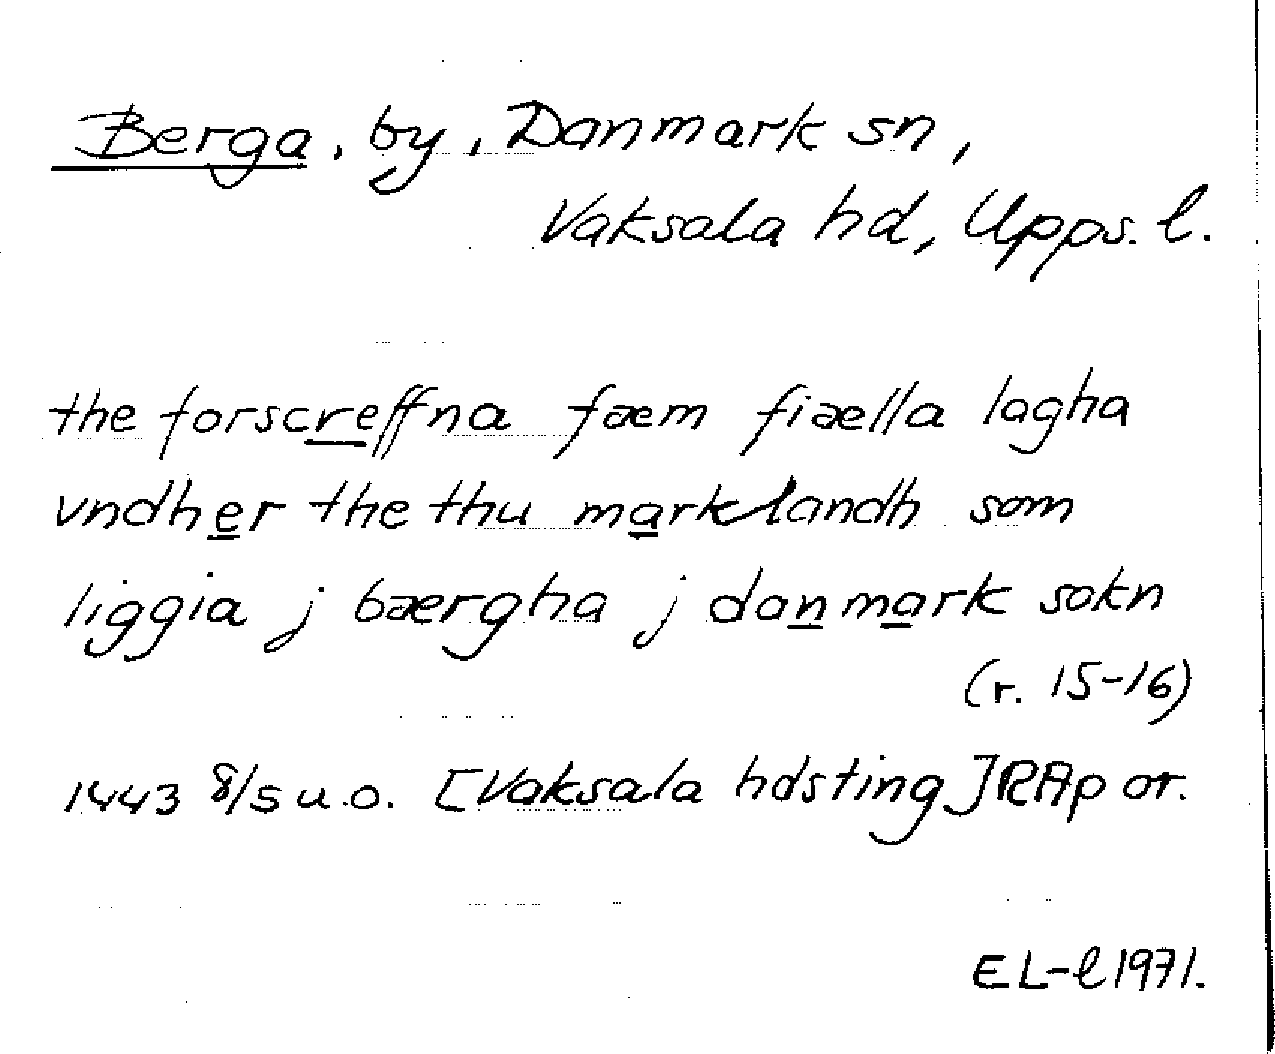 Berga, by, Danmark sn,
Vaksala hd, Upps. l.
the forscreffna fæm fiælla lagha
vndher the thu marklandh som
liggia j bærgha j danmark sokn
(r. 15-16)
1443 8/5 u.o. [Vaksala hdsting] RAp or.
EL-l 1971.